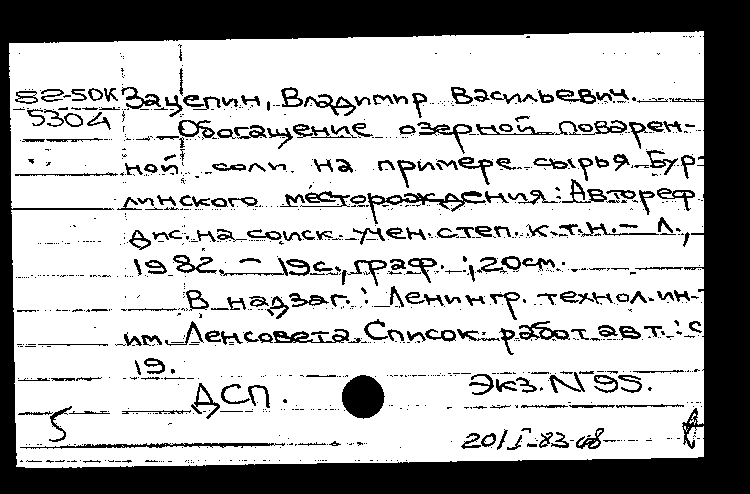 82-5ДК Зацепин, Владимир Васильевич.
5304
Обогащение озерной поварен-
ной соли на примере сырья Бур-
линского месторождения: Автореф
дис. на соиск. учен. степ. к.т.н. - Л.,
1982. - 19с., граф.; 20см.
В надзаг.: Ленингр. технол. ин-т
им. Ленсовета. Список работ авт.: с
19.
ДСП. Экз. N 95.
5
20/I-83